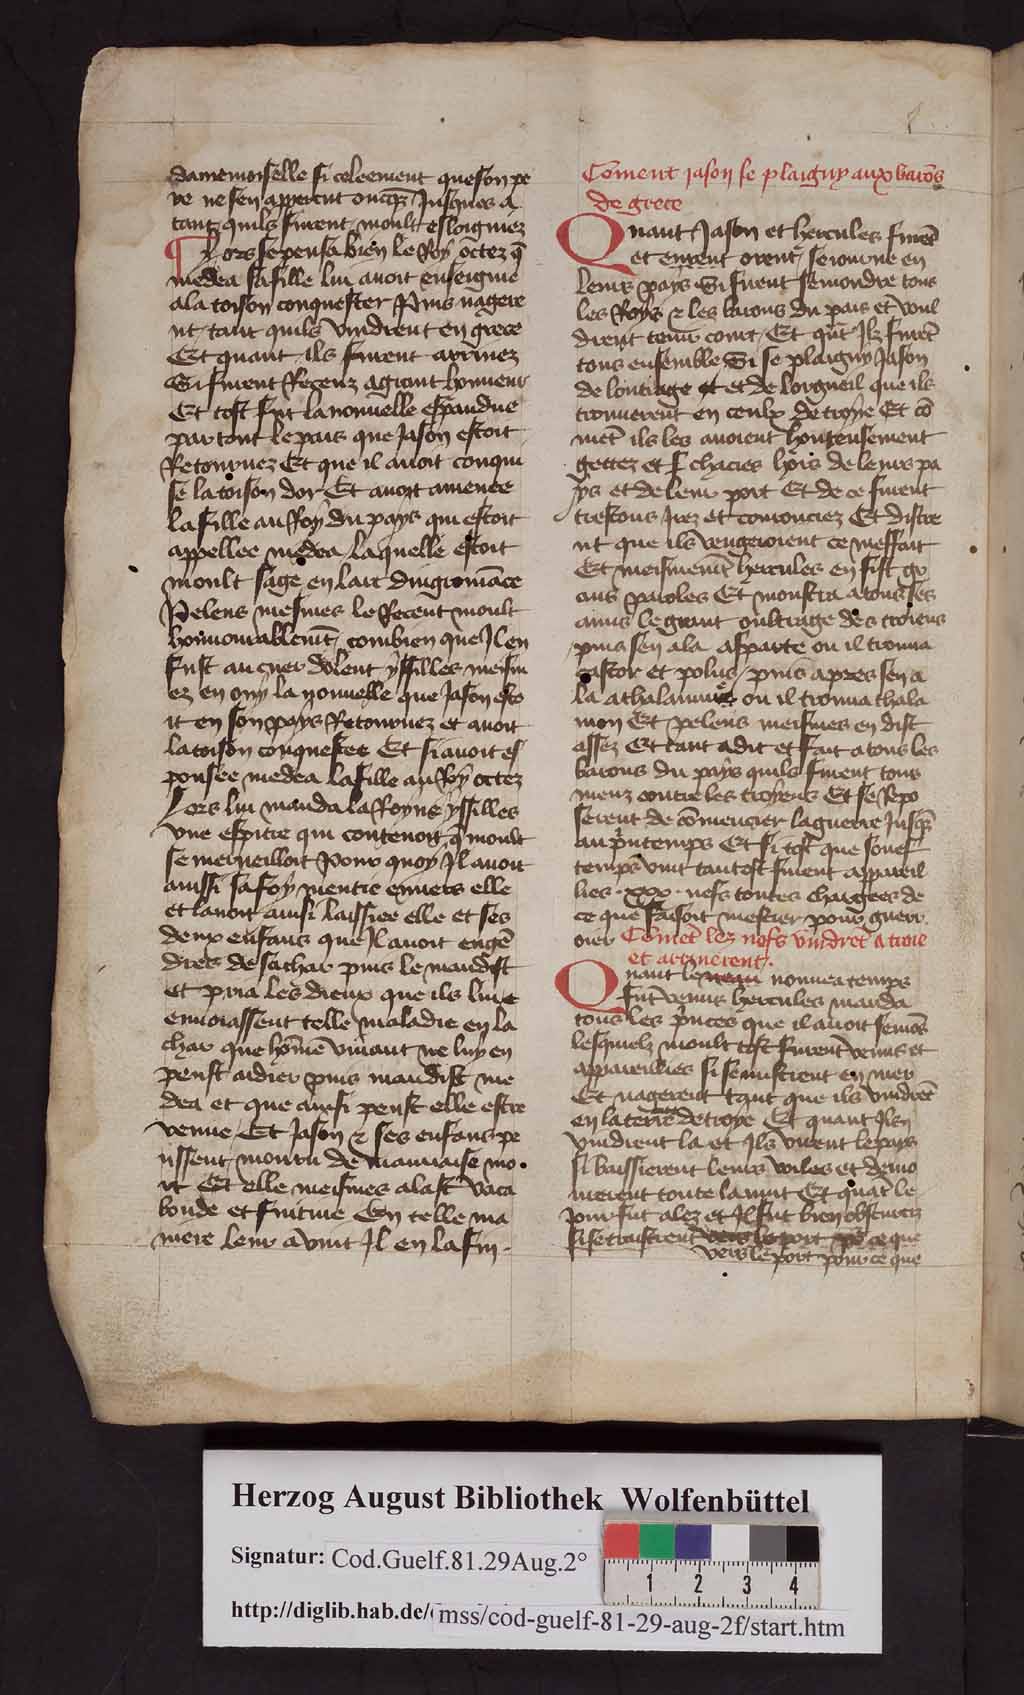 damemoiselle si celeement que son pe
re ne sen appereut oncqз Jusques a
tant quils furent moult esloigniez
Lors se pensa bien le Roy octez q̄
medea sa fille lui auoit enseignie
a la toison conquester Puis nagere
nt tant quils vindrent en grece
Et quant ils furent arriuez
Si furent Receuz a grant honneur
Et tost fut la nouuelle espandue
par tout le pais que Jason estoit
Retournez Et que il auoit conqui
se la toison dor Et auoit amenee
la fille au Roy du pays qui estoit
appellee medea laquelle estoit
moult sage en lart dnigromāce
Peleus mesmes le Receut moult
honnourablemēt combien que Jl en
fust au cuer dolent ysfilles meism
ez en ony la nouuelle que Jason esto
it en son pays Retournez et auoit
la toison conquestee Et si auoit es
pousee medea la fille au Roy octez
Lors lui manda la Royne ysfilles
vne espitre qui contenoit q̄ moult
se merueilloit Pour quoy Jl auoit
ainssi sa foy mentie enuers elle
et lauoit ainsi laissiee elle et ses
deux enfans que Jl auoit engē
drés de sa char puis le maudist
et pria les dieux que ils lui
enuoiassent telle maladie en la
char que hōme viuant ne luy en
peust aidier puis maudist me
dea et que ainsi peust elle estre
venue Et Jason & ses enfans pe
rissent mouru de mauuaise mo
rt Et elle meismes alast vaca
bonde et fuitiue En telle ma
niere leur avint Jl en la fin
Coment jason se plaigny aux barōs
de grece
Quant Jason et hercules furēt
et eurent orent seiourne en
leurs pays Si furent semondre tous
les Roys & les barons du pais et voul
drent tenir court Et qūt Jlz furēt
tous ensemble Si se plaigny Jason
de loutrage et et de lorgueil que ils
trouuerent en ceulx de troye Et cō
mēt ils les auoient honteusement
gettez et chacies hors de leurs pa
ys et de leur port Et de ce furent
trestous Jrez et corrouciez Et distre
nt que ils vengeroient ce meffait
Et meismemēt hercules en fist gr
ans paroles Et monstra a tous ses
amis le grant oultrage des troiens
puis sen ala a sparte ou il trouua
castor et polus puis apres sen a
la a thalamine ou il trouua thala
mon Et peleus meismes en dist
assez Et tant a dit et fait a tous les
barons du pays quils furent tous
meuz contre les troyens Et se Repo
serent de cōmencier la guerre Jusqз
au pᵣntemps Et si tost que souef
temps vint tantost furent appareil
lies .xxx. nefs toutes chargees de
ce que faisoit mestier pour guerr
oier Comēt lez nefs vindrēt a troie
et arriuerent.
Quant le nouuea temps
fut venus hercules manda
tous les p̄nces que il auoit semōs
lesquelz moult tost furent venus et
appareillies si se mistrent en mer
Et nagerent tant que ils vindrēt
en la terre de troye Et quant Jlz
vindrent la et Jls virent le pays
si baissierent leurs voiles et demo
urerent toute la nuit Et quāt le
jour fut alez et Jl fut bien obscurcis
si se traistrent vers le port pᵒ ce que
vers le port pour ce que
Herzog August Bibliothek Wolfenbüttel
Signatur: Cod.Guelf.81.29Aug.2°
http://diglib.hab.de/mss/cod-guelf-81-29-aug-2f/start.htm
1 2 3 4